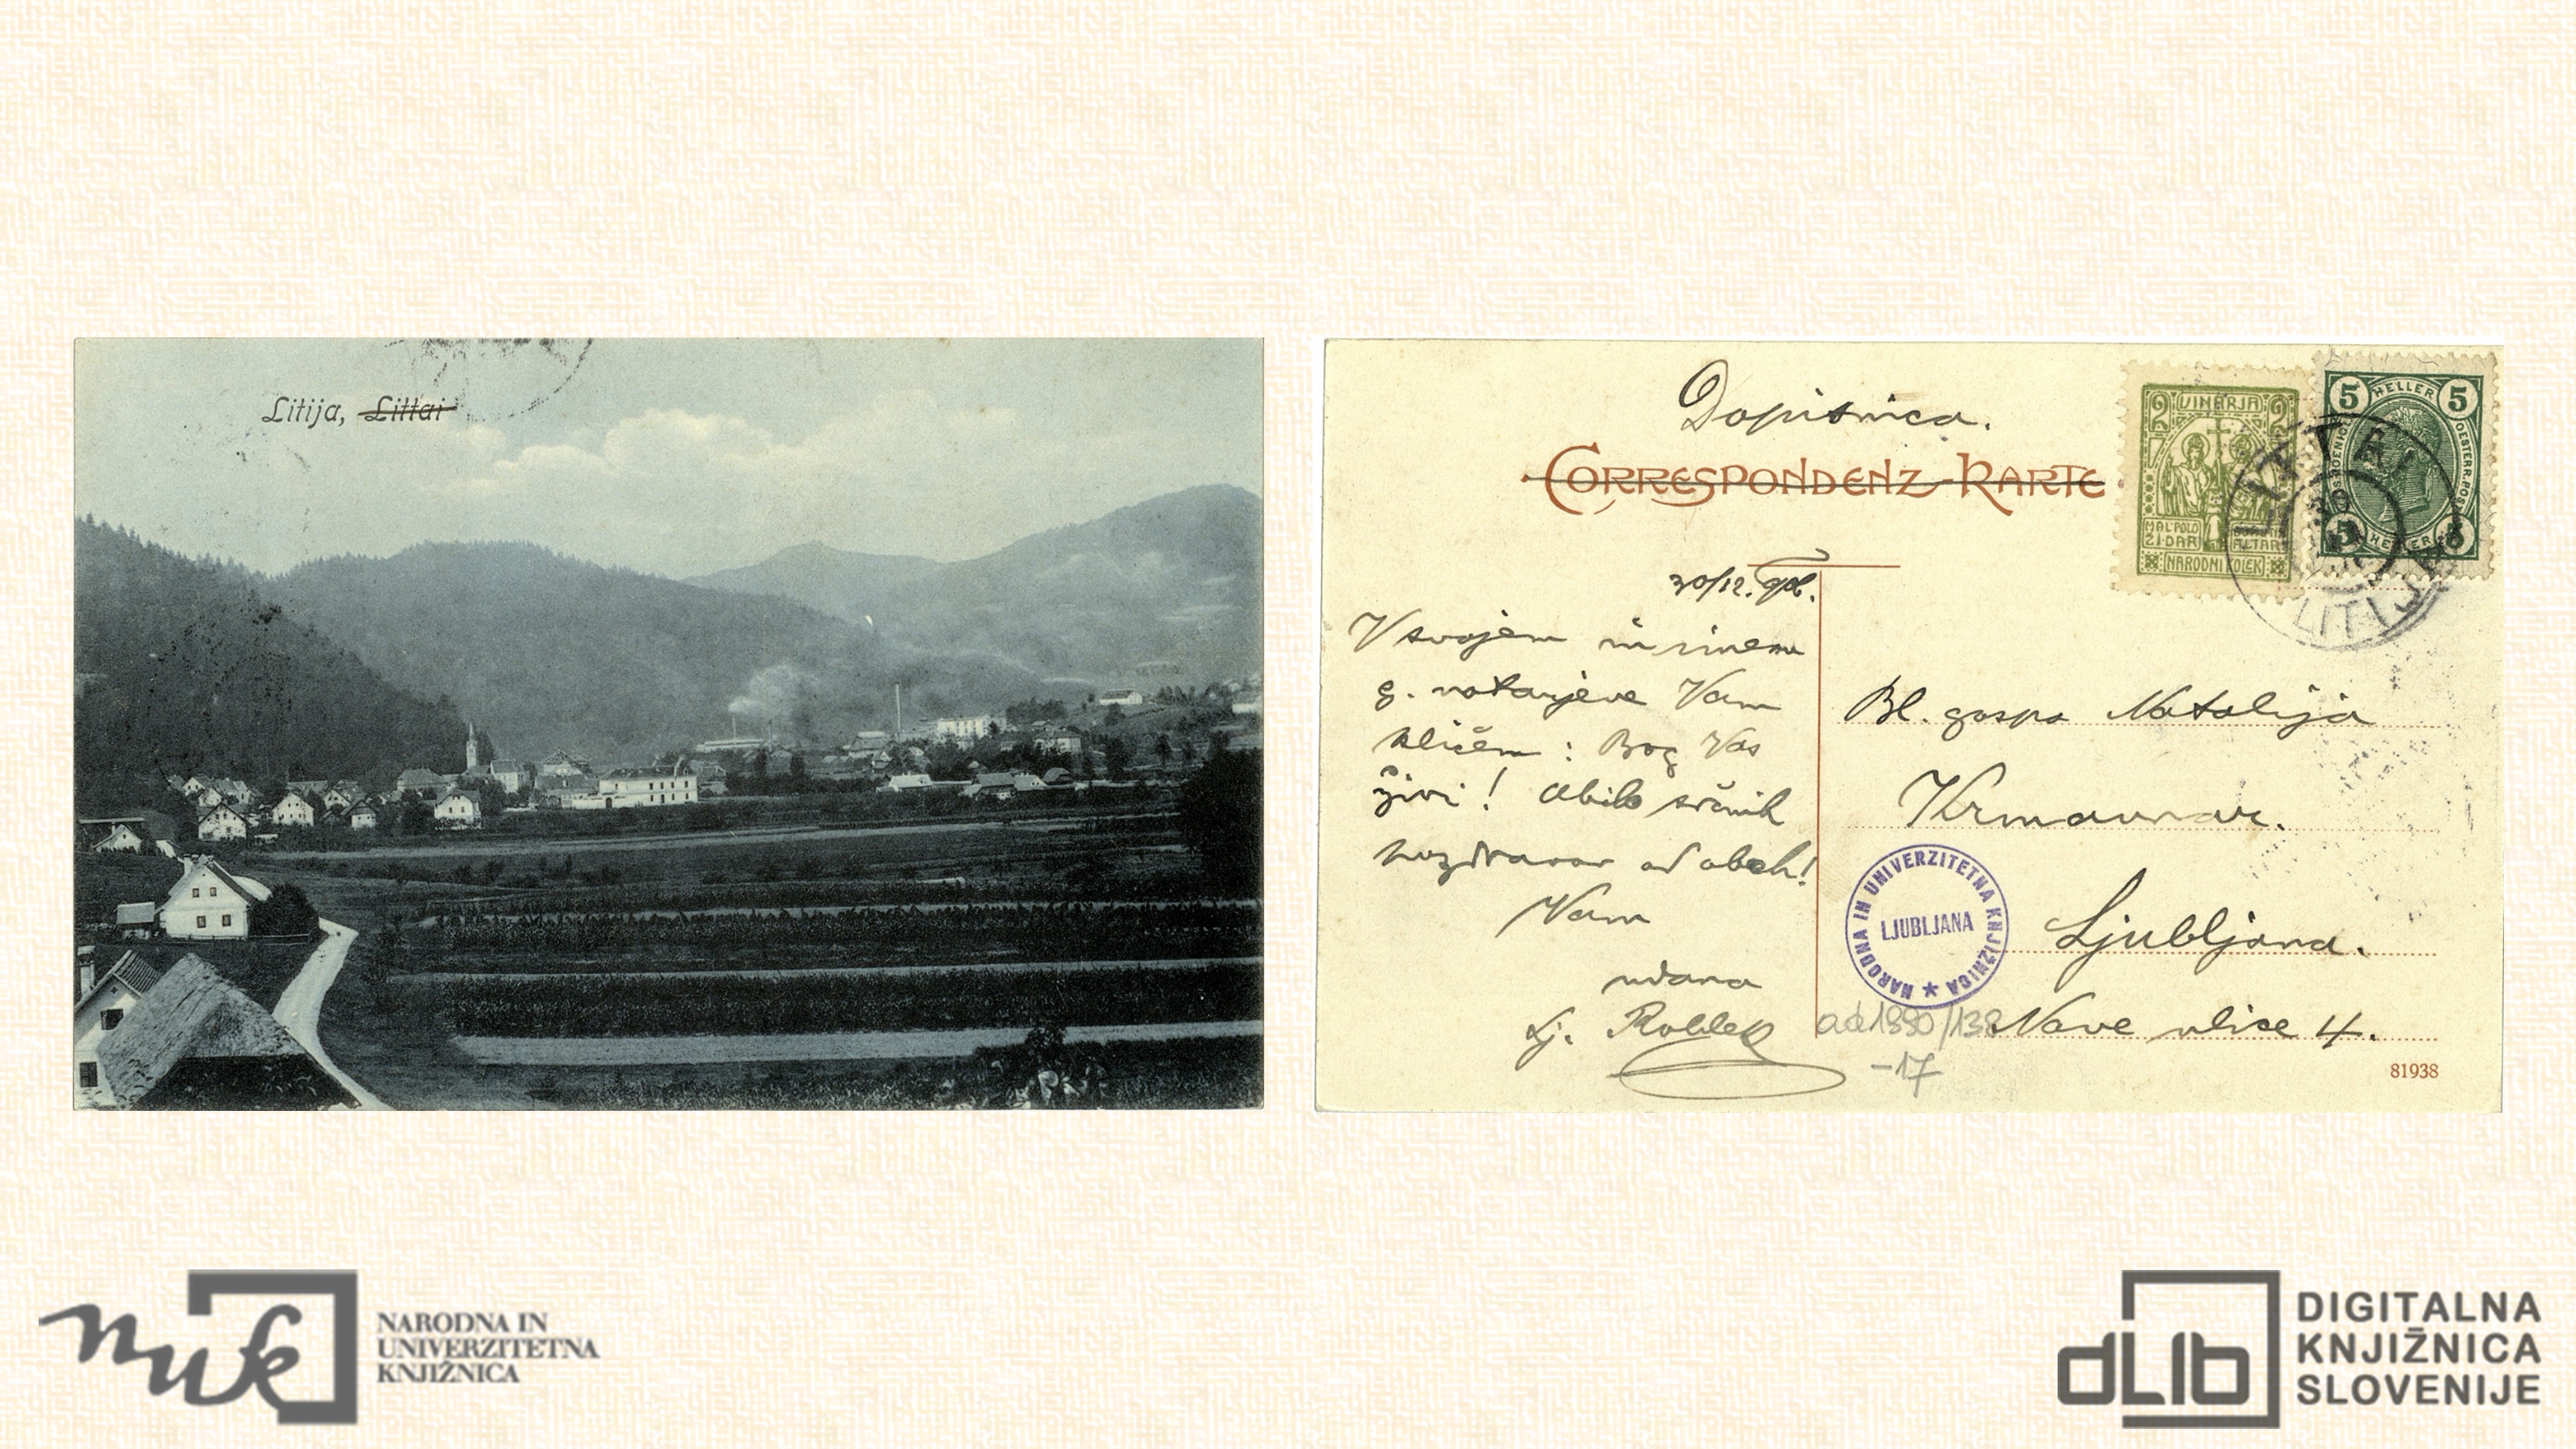 Litija, Littai
Dopisnica.
CORRESPONDENZ-KARTE
2 VINARJA 2
MAL POLO
ŽI DAR
ALTAR
NARODNI KOLEK
5 HELLER 5
5 HELLER 5
LITTAI
LITIJA
30/12.
V svojem in imenu
g. notarjeve Vam
kličem: Bog Vas
živi! Obilo srčnih
pozdravov od obeh!
Vam
udana
Lj. Roblek
Bl. gospa Natalija
Krmavnar.
Ljubljana.
Nove ulice 4.
NARODNA IN UNIVERZITETNA KNJIŽNICA
LJUBLJANA
ad 1390/138
-17
81938
nuk
NARODNA IN
UNIVERZITETNA
KNJIŽNICA
dLib
DIGITALNA
KNJIŽNICA
SLOVENIJE